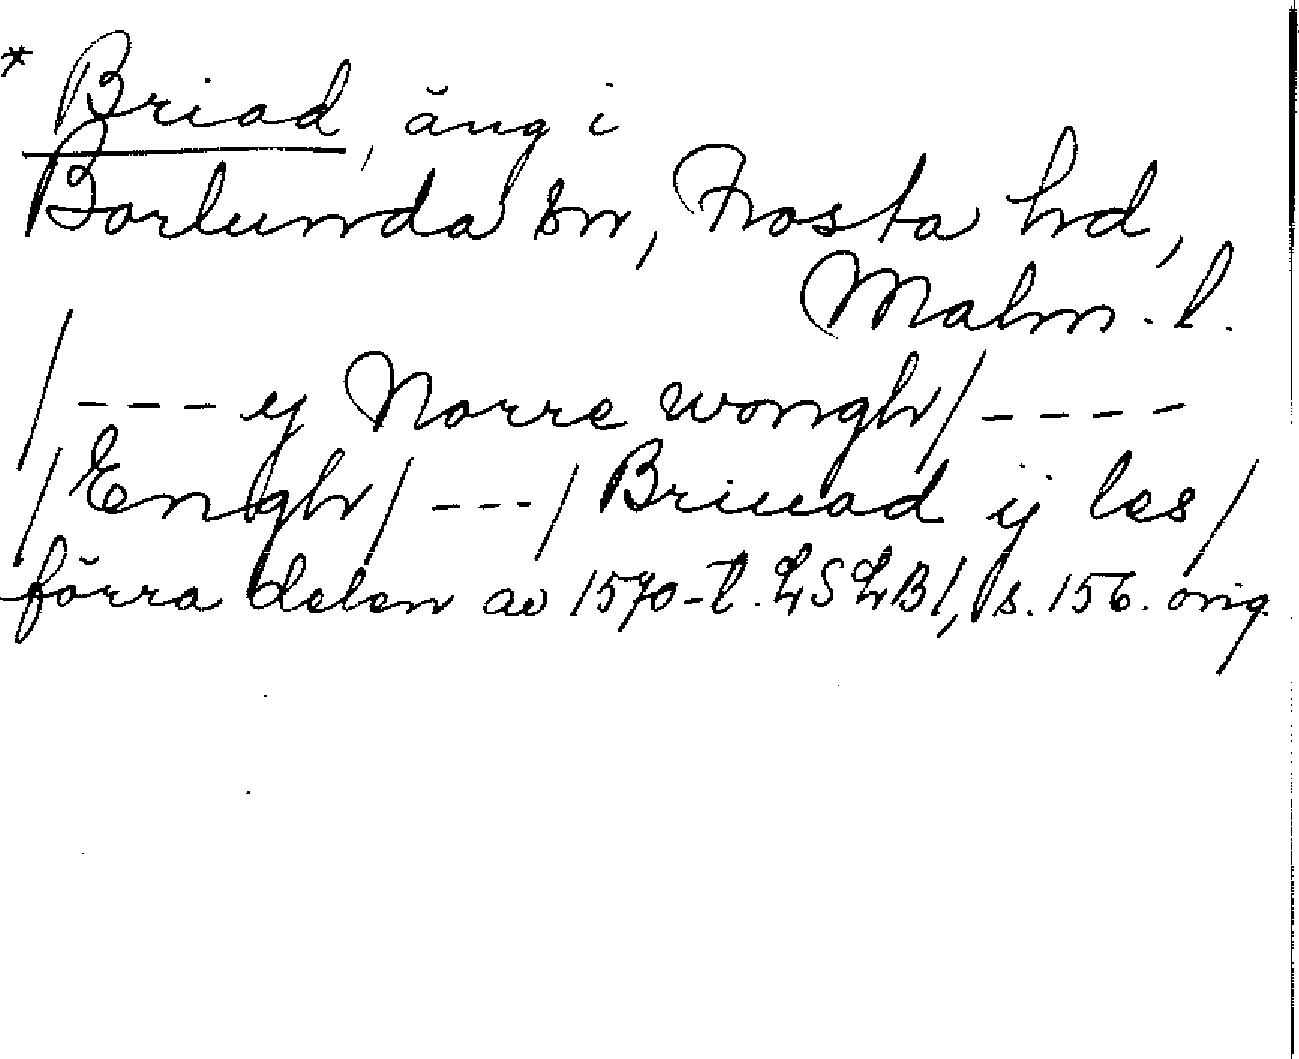 * Briad, äng i
Borlunda sn, Frosta hd,
Malm. l.
/--- y Norre wongh/ ----
/Engh/ ---/ Briuad ij les/
förra delen av 1570-t. LSLB 1, s. 156. orig.